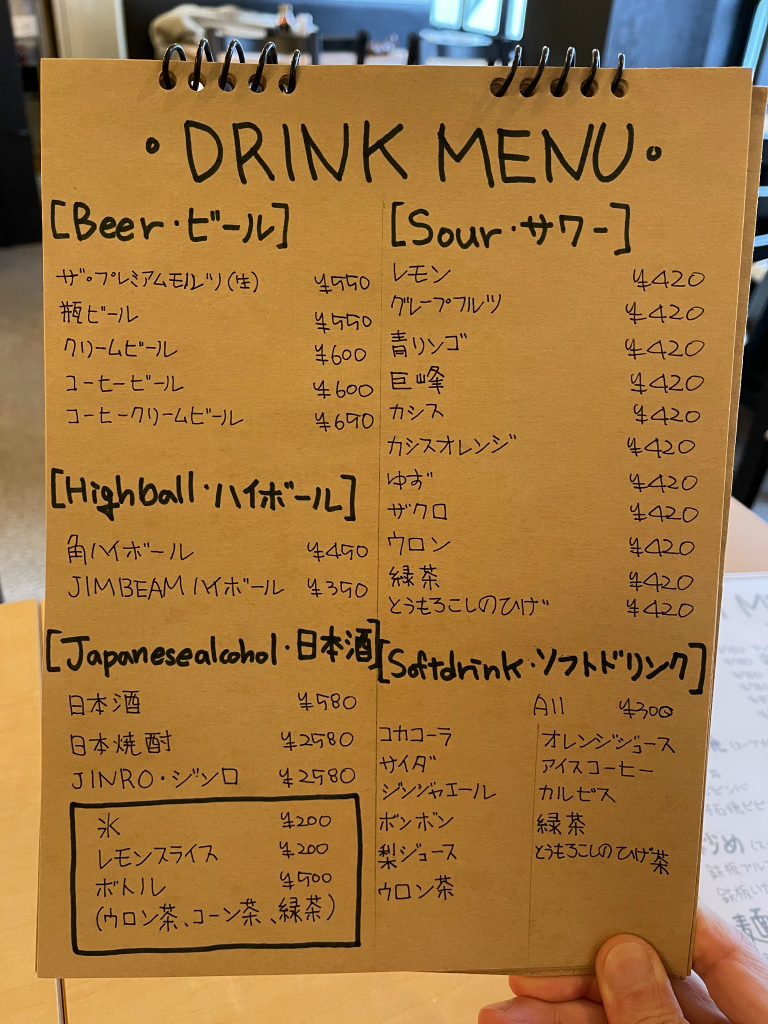 ・DRINK MENU・
[Beer・ビール]
ザ・プレミアムモルツ(生) ¥550
瓶ビール ¥550
クリームビール ¥600
コーヒービール ¥600
コーヒークリームビール ¥650
[Highball・ハイボール]
角ハイボール ¥450
JIMBEAMハイボール ¥350
[Japanesealcohol・日本酒]
日本酒 ¥580
日本焼酎 ¥2580
JINRO・ジンロ ¥2580
氷 ¥200
レモンスライス ¥200
ボトル ¥500
(ウロン茶、コーン茶、緑茶)
[Sour・サワー]
レモン ¥420
グレープフルツ ¥420
青リンゴ ¥420
巨峰 ¥420
カシス ¥420
カシスオレンジ ¥420
ゆず ¥420
ザクロ ¥420
ウロン ¥420
緑茶 ¥420
とうもろこしのひげ ¥420
[Softdrink・ソフトドリンク]
All ¥300
コカコーラ
サイダ
ジンジャエール
ボンボン
梨ジュース
ウロン茶
オレンジジュース
アイスコーヒー
カルピス
緑茶
とうもろこしのひげ茶